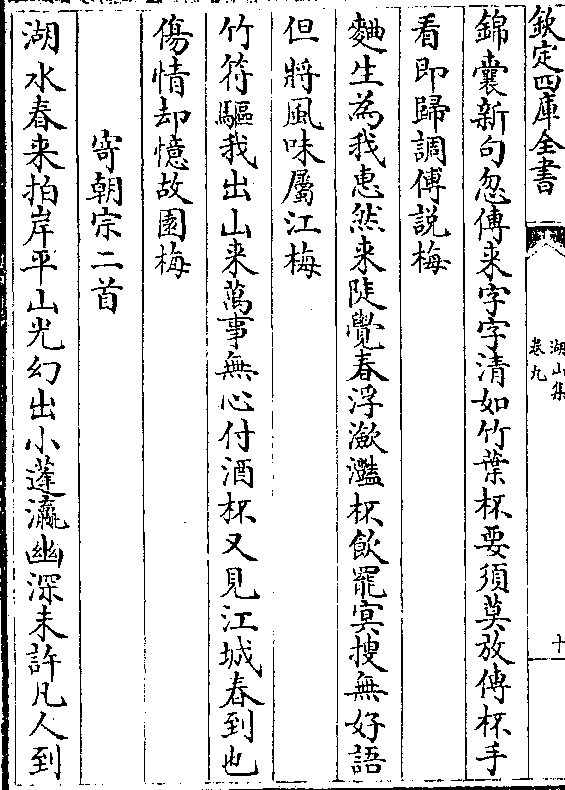 欽定四庫全書
湖山集
卷九
十
錦囊新句忽傳来字字清如竹葉杯要須莫放傳杯手
看即歸調傅説梅
麯生為我恵然来陡覺春浮瀲灩杯飲罷冥搜無好語
但將風味屬江梅
竹符驅我出山来萬事無心付酒杯又見江城春到也
傷情却憶故園梅
寄朝宗二首
湖水春来拍岸平山光幻出小蓬瀛幽深未許凡人到